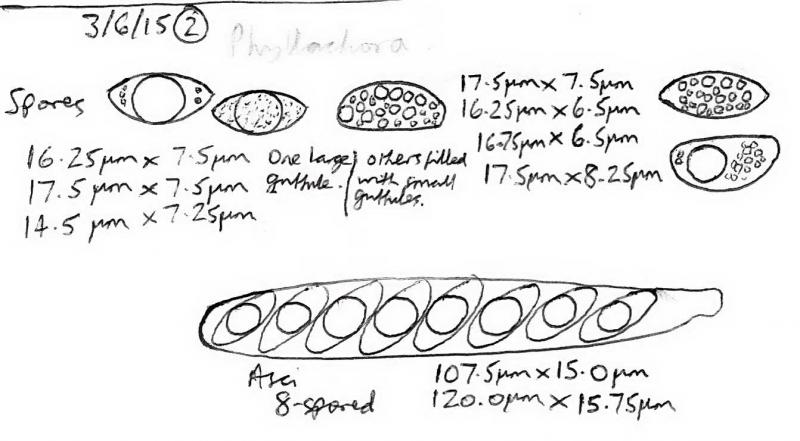 3/6/15 2
Phyllachora
Spores
16.25µm x 7.5µm
17.5µm x 7.5µm
14.5µm x 7.25µm
One large
guttule.
others filled
with small
guttules.
17.5µm x 7.5µm
16.25µm x 6.5µm
16.75µm x 6.5µm
17.5µm x 8.25µm
Asci
8-spored
107.5µm x 15.0µm
120.0µm x 15.75µm